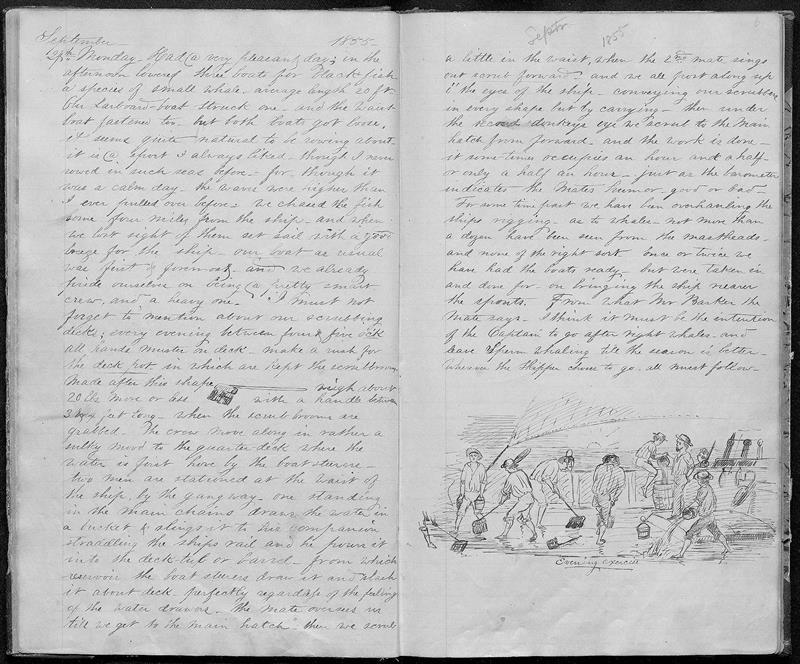 September 1855-
24th Monday. Had a very pleasant day; in the
afternoon lowered three boats for Black fish
a species of small whale. average length 20 ft.
Our Larboard boat struck one. and the waist
boat fastened too. but both boats got loose.
it seems quite natural to be rowing about
it is a sport I always liked. though I never
rowed in such seas before. for though it
was a calm day. the waves were higher than
I ever pulled over before. we chased the fish
some four miles from the ship. and when
we lost sight of them set sail with a good
breeze for the ship. our boat as usual
was first & foremost. and we already
pride ourselves on being a pretty smart
crew, and a heavy one. I must not
forget to mention about our scrubbing
decks; every evening between four & five ock
all hands muster on deck. make a rush for
the deck pot in which are kept the scrub brooms
made after this shape weigh about
20 lbs more or less with a handle between
feet long. when the scrub brooms are
grabbed. The crew move along in rather a
sulky mood to the quarter deck where the
water is first hove by the boatsteerers-
two men are stationed at the waist of
the ship, by the gangway. one standing
in the main chains draws the water in
a bucket & slings it to his companion
straddling the ships rail and he pours it
into the deck tub or barrel. from which
reservoir the boat steerers draw it and slush
it about deck. perfectly regardless of the feelings
of the water drawers. the mate oversees us
till we get to the main hatch. then we scrub
Septr 1855
6
a little in the waist, when the 2nd mate sings
out scrub forward. and we all post along up
to the eyes of the ship. conveying our scrubbers
in every shape but by carrying. then under
the second donkeys eye we scrub to the main
hatch from forward. and the work is done-
it some times occupies an hour and a half-
or only a half an hour. just as the barometer
indicates the Mates humor. good or bad-
For some time past we have been overhauling the
ships rigging. as to whales not more than
a dozen have been seen from the mastheads-
and none of the right sort. once or twice we
have had the boats ready. but were taken in
and done for. on bringing the ship nearer
the spouts. From what Mr Barker the
Mate says. I think it must be the intention
of the Captain to go after right whales. and
leave Sperm Whaling till the season is better-
wherever the Skipper chose to go. all must follow-
Evening exercise